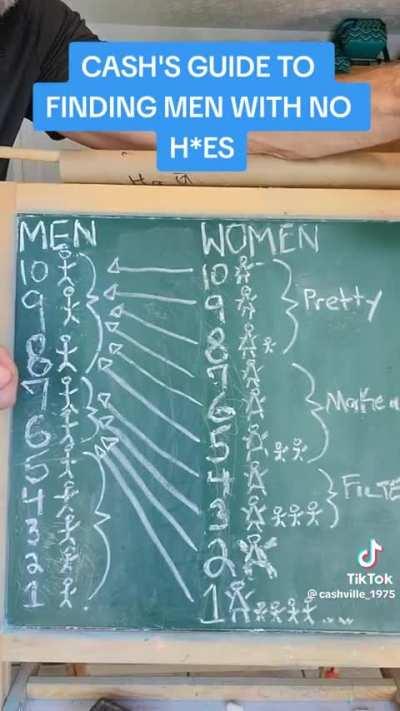 CASH'S GUIDE TO
FINDING MEN WITH NO
H*ES
MEN
WOMEN
10
10
9
9
Pretty
8
8
7
7
6
6
5
5
4
4
3
3
2
2
1
1
TikTok
@cashville_1975